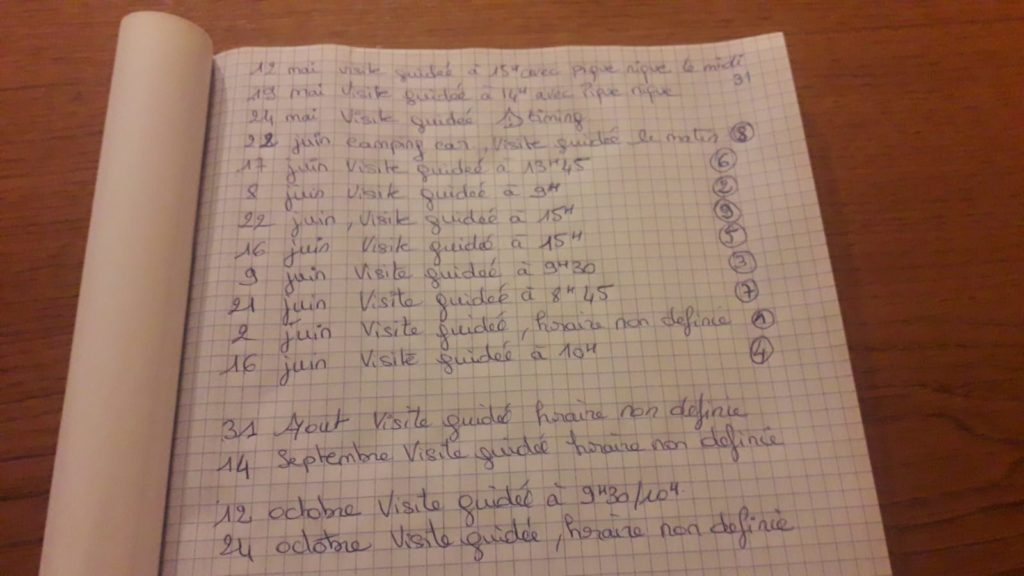 12 mai visite guideé à 15H avec pique nique le midi
31
19 mai Visite guideé à 14H avec Pique nique
24 mai Visite guideé timing
22 juin camping car, Visite guideé le matin 8
17 juin Visite guideé à 13H45 6
8 juin Visite guideé à 9H 2
22 juin, Visite guideé à 15H 9
16 juin Visite guideé à 15H 5
9 juin Visite guideé à 9H30 3
21 juin Visite guideé à 8H45 7
2 juin Visite guideé, horaire non definie 1
16 juin Visite guideé à 10H 4
31 Aout Visite guideé horaire non definie
14 Septembre Visite guideé horaire non definie
12 octobre Visite guideé à 9H30/10H
24 octobre Visite guideé, horaire non definie